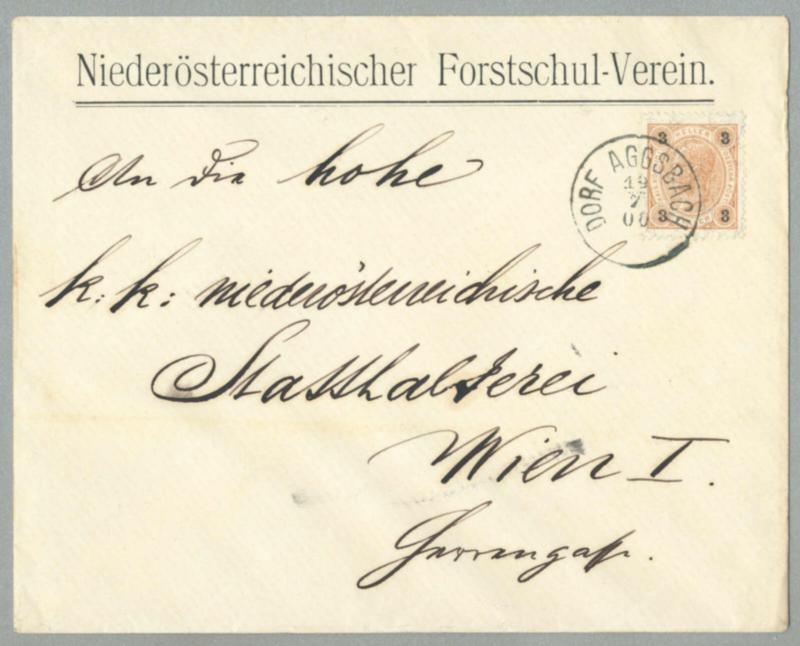 Niederösterreichischer Forstschul-Verein.
3 HELLER 3
3 3
DORF AGGSBACH
19
7
00
An die hohe
k: k: niederösterreichische
Statthalterei
Wien I.
Herrengasse.